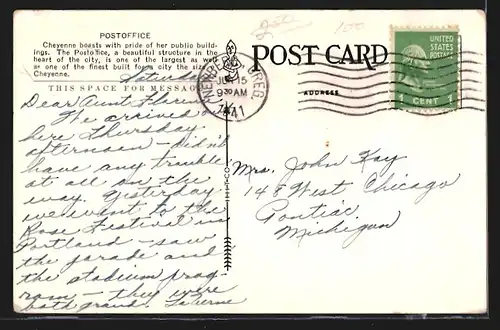 POSTOFFICE
Cheyenne boasts with pride of her public build-
ings. The Postoffice, a beautiful structure in the
heart of the city, is one of the largest as well
as one of the finest built for a city the size of
Cheyenne.
THIS SPACE FOR MESSAGE
Saturday
Dear Aunt
We arrived
here Thursday
afternoon – didn't
have any trouble
at all on the
way. Yesterday
we went to the
Rose Festival in
Portland – saw
the parade and
the stadium prog-
ram – they were
both grand. LaVerne
POST CARD
ADDRESS
UNITED STATES
POSTAGE
1 CENT 1
NEWBERG OREG.
JUN 15
9 30 AM
1941
Mrs. John Kay
148 West Chicago
Pontiac
Michigan